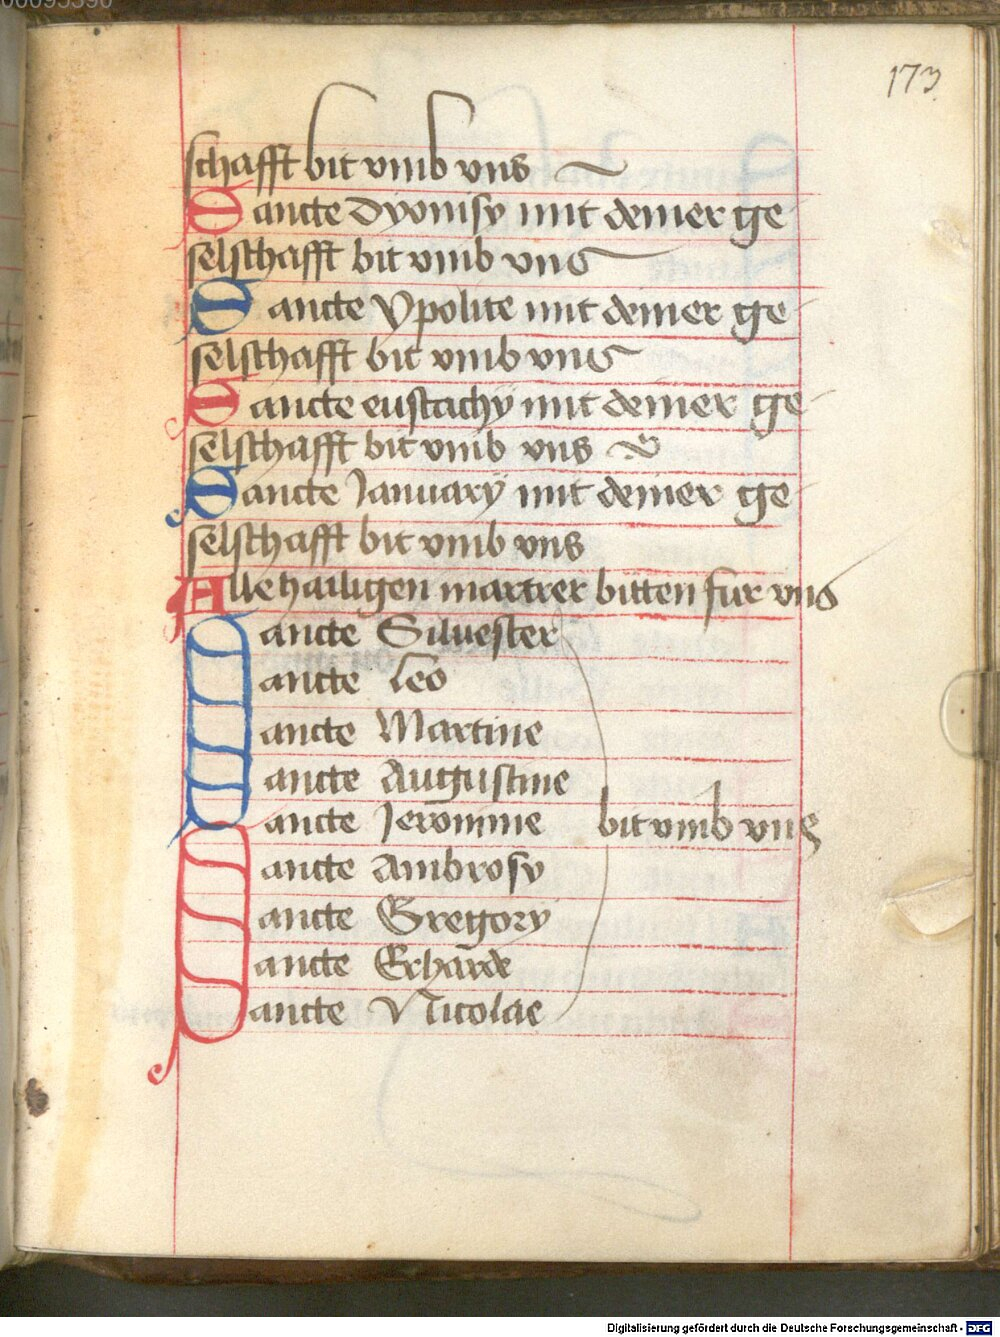 00095590
173
schafft bit vmb vns
Sancte Dyonisy mit deiner ge
selschafft bit vmb vns
Sancte Ypolite mit deiner ge
selschafft bit vmb vns
Sancte eustachy mit deiner ge
selschafft bit vmb vns
Sancte Januarÿ mit deiner ge
selschafft bit vmb vns
Alle hailigen martrer bitten fur vns
Sancte Siluester
Sancte Leo
Sancte Martine
Sancte Augustine
Sancte Jeronime bit vmb vns
Sancte Ambrosy
Sancte Gregory
Sancte Erharde
Sancte Nicolae
Digitalisierung gefördert durch die Deutsche Forschungsgemeinschaft - DFG